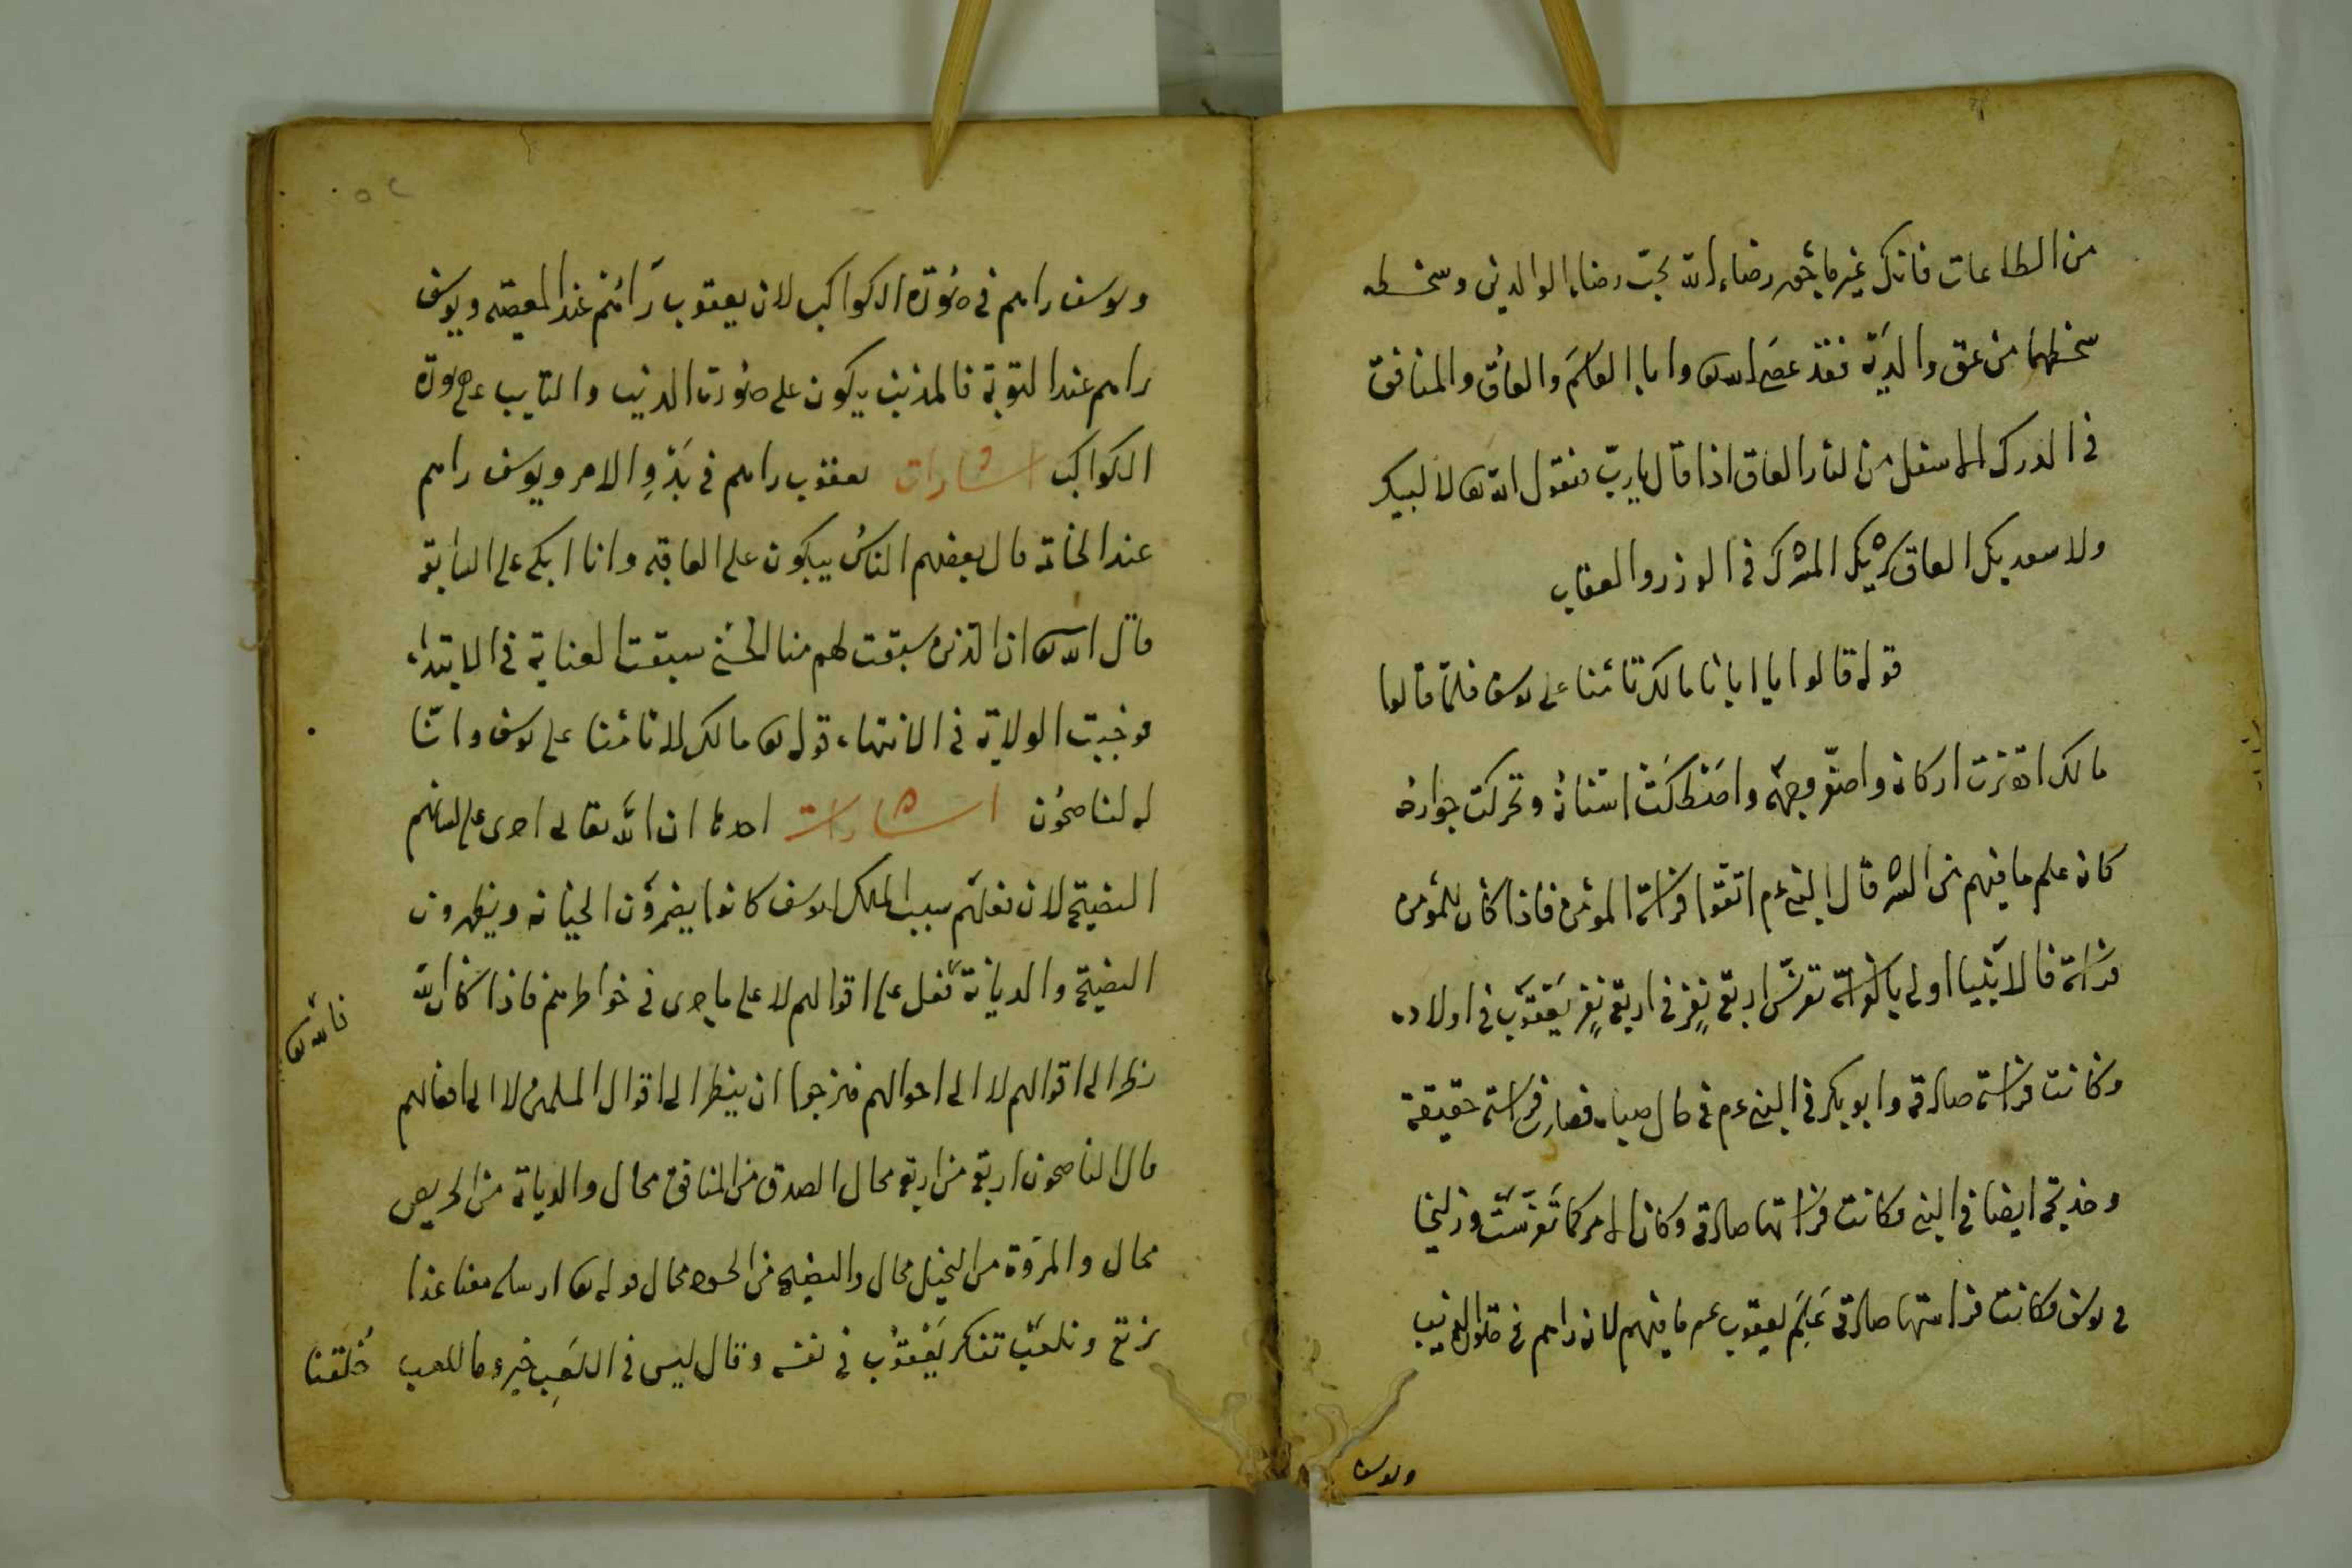 من الطاعات فانك غير ماجور رضاء الله تحت رضاء الوالدين وسخطه
سخطهما من عق والديه فقد عصى الله تع وابا القاسم والعاق والمنافق
فى الدرك الاسفل من النار العاق اذا قال يارب فيقول الله تع لا لبيك
ولا سعديك العاق شريك المشرك فى الوزر والعقاب
قوله قالوا يا ابانا مالك تامنا على يوسف فلما قالوا
مالك اهتزت اركانه واصفر وجهه واصطكت اسنانه وتحركت جوارحه
كانه علم ما فيهم من الشر قال النبى عم اتقوا فراسة المؤمن فاذا كان للمؤمن
فراسة فالانبيا اولى بالفراسة تفرس اربعة نفر فى اربعة نفر يعقوب فى اولاده
وكانت فراسة صادقة وابو بكر فى النبى عم فى حال صباه فصار فراسته حقيقة
وخديجة ايضا فى النبى فكانت فراستها صادقة وكان الامر كما تفرست وزليخا
فى يوسف فكانت فراستها صادقة علم يعقوب عم ما فيهم لانه راهم فى الذيب
ويوسف
ويوسف راهم فى صورة الكواكب لان يعقوب رائهم عند المعصية ويوسف
راهم عند التوبة فالمذنب يكون على صورت الذيب والتايب على صورة
الكواكب اشارات يعقوب راهم فى بدو الامر ويوسف راهم
عند الخاتمة قال بعضهم الناس يبكون على العاقبه وانا ابكى على السابقة
قال الله تع ان الذين سبقت لهم منا الحسنى سبقت العناية فى الابتداء
فوجبت الولاية فى الانتهاء قوله تع مالك لا تامنا على يوسف وانا
له لناصحون اشارات احدها ان الله تعالى اجرى على لسانهم
النصيحة لان فعلهم سبب الملك ليوسف كانوا يضمرون الخيانه ويظهرون
النصيحة والديانة فعل على اقوالهم لا على ما جرى فى خواطرهم فاذا كان الله
فالله تع
نظر الى اقوالهم لا الى احوالهم فنرجوا ان ينظر الى اقوال المسلمين لا الى افعالهم
قال الناصحون اربعة من اربعة محال الصدق من المنافق محال والديانة من الحريص
محال والمروة من البخيل محال والنصيحة من الحسود محال قوله تع ارسله معنا غدا
نرتع ونلعب تفكر يعقوب فى نفسه وقال ليس فى اللعب خير وما للعب خلقنا